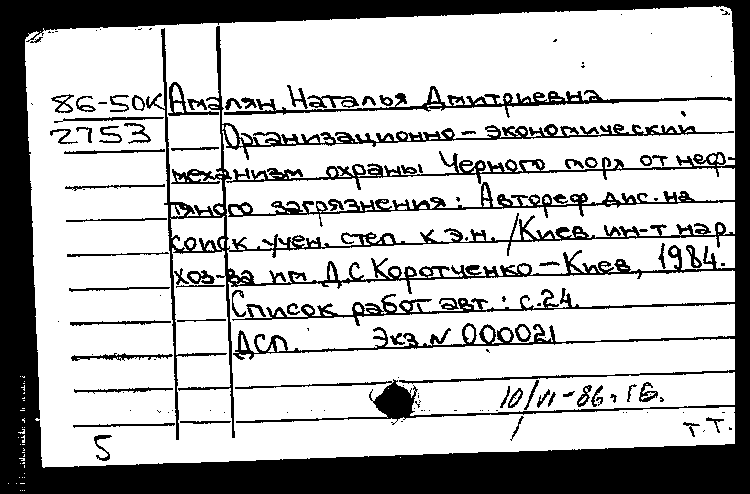 86-50к Амалян, Наталья Дмитриевна
2753 Организационно-экономический
механизм охраны Черного моря от неф-
тяного загрязнения: Автореф. дис. на
соиск. учен. степ. к.э.н. /Киев. ин-т нар.
хоз-ва им. Д.С. Коротченко. - Киев, 1984.
Список работ авт.: с. 24.
ДСП. Экз. N 000021
10/VI-86.
5 Т.Т.